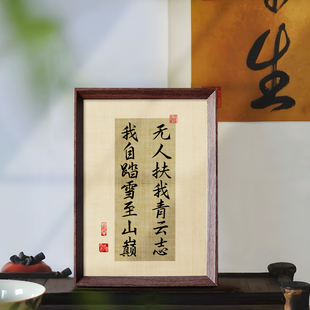 无人扶我青云志
我自踏雪至山巅
生